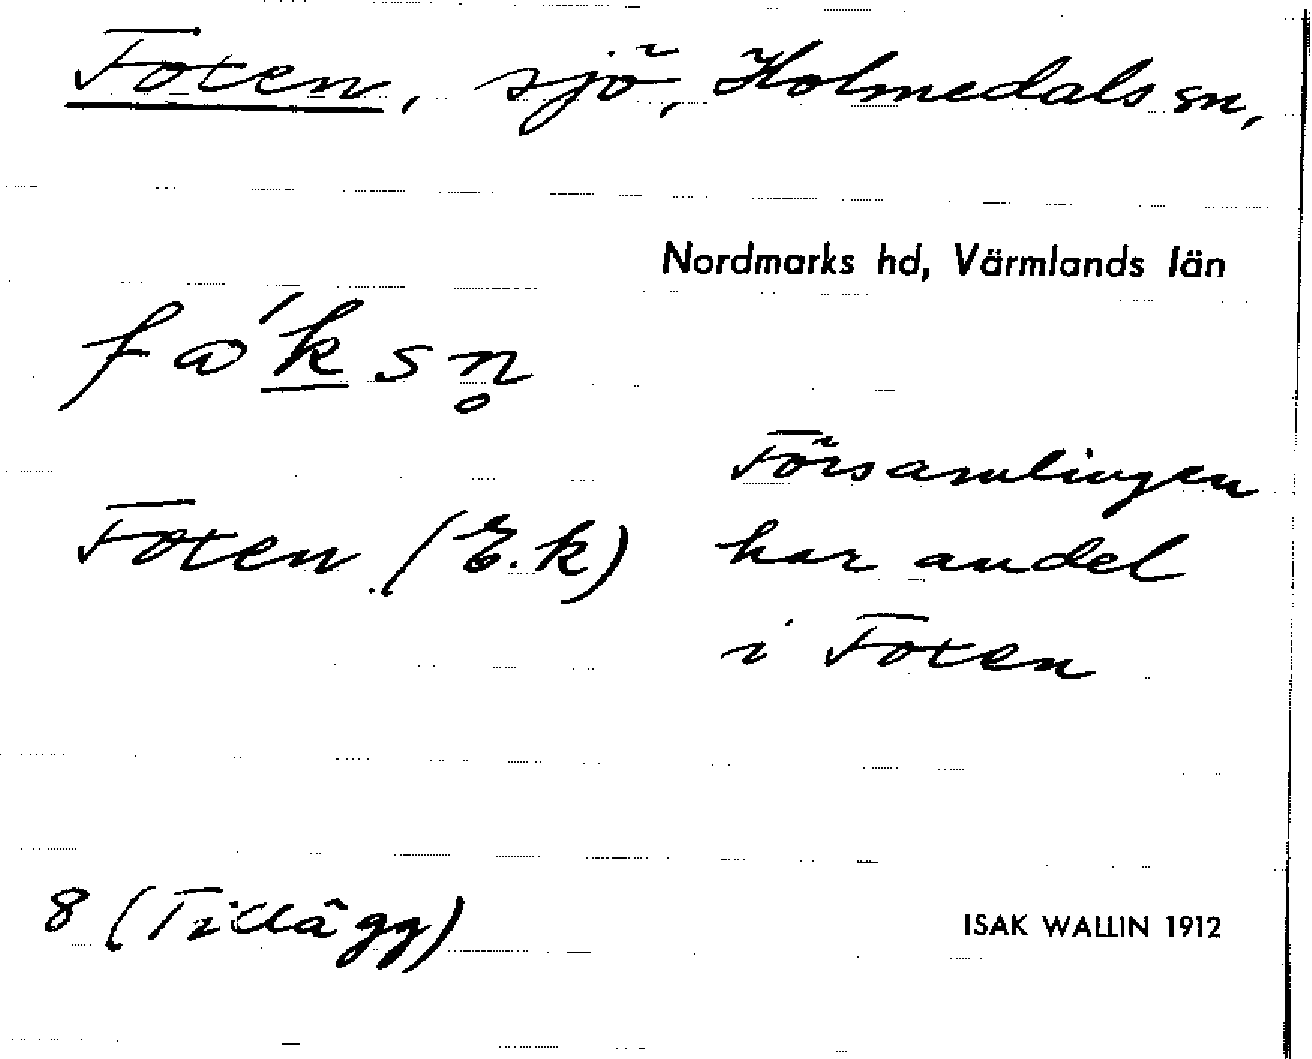 Foxen, sjö, Holmedals sn,
Nordmarks hd, Värmlands län
fώksn̥
Foxen (E.k)
Församlingen
har andel
i Foxen
8 (Tillägg)
ISAK WALLIN 1912